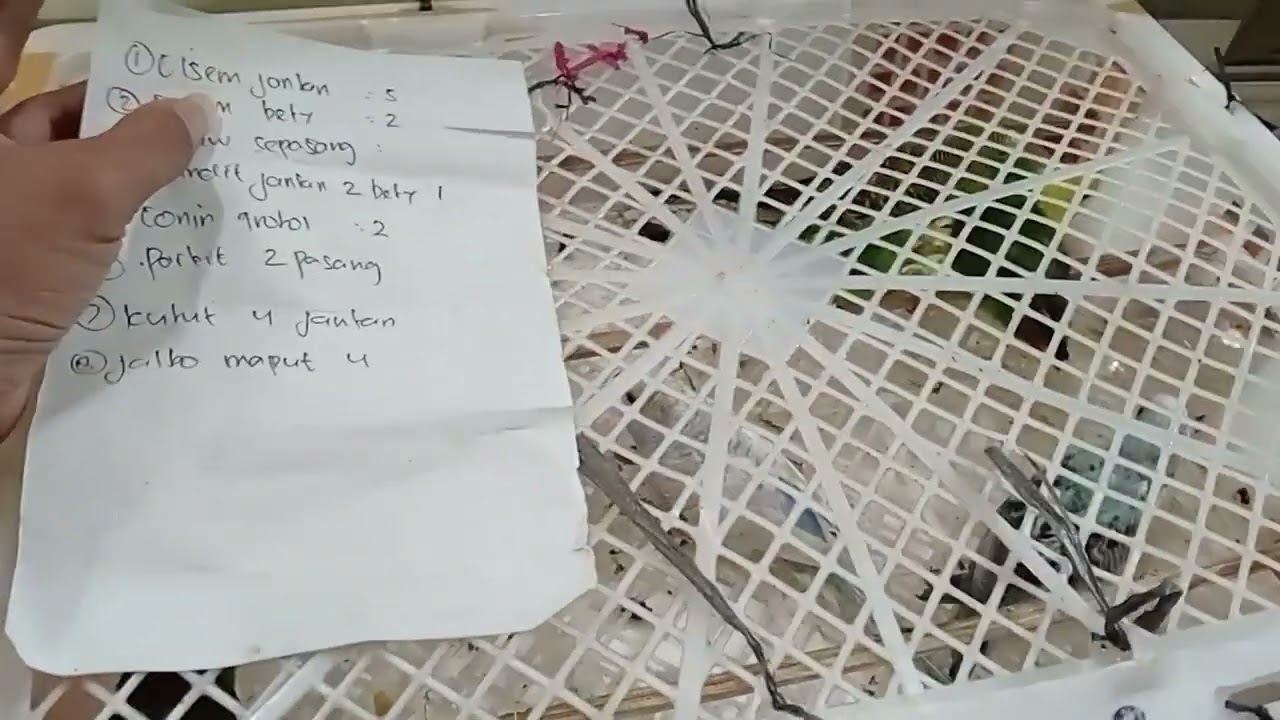 ① Cisem jantan : 5
② bety : 2
sepasang :
jantan 2 bety 1
Conin grobol : 2
. Parkit 2 pasang
⑦ kutut 4 jantan
⑧ jalbo maput 4